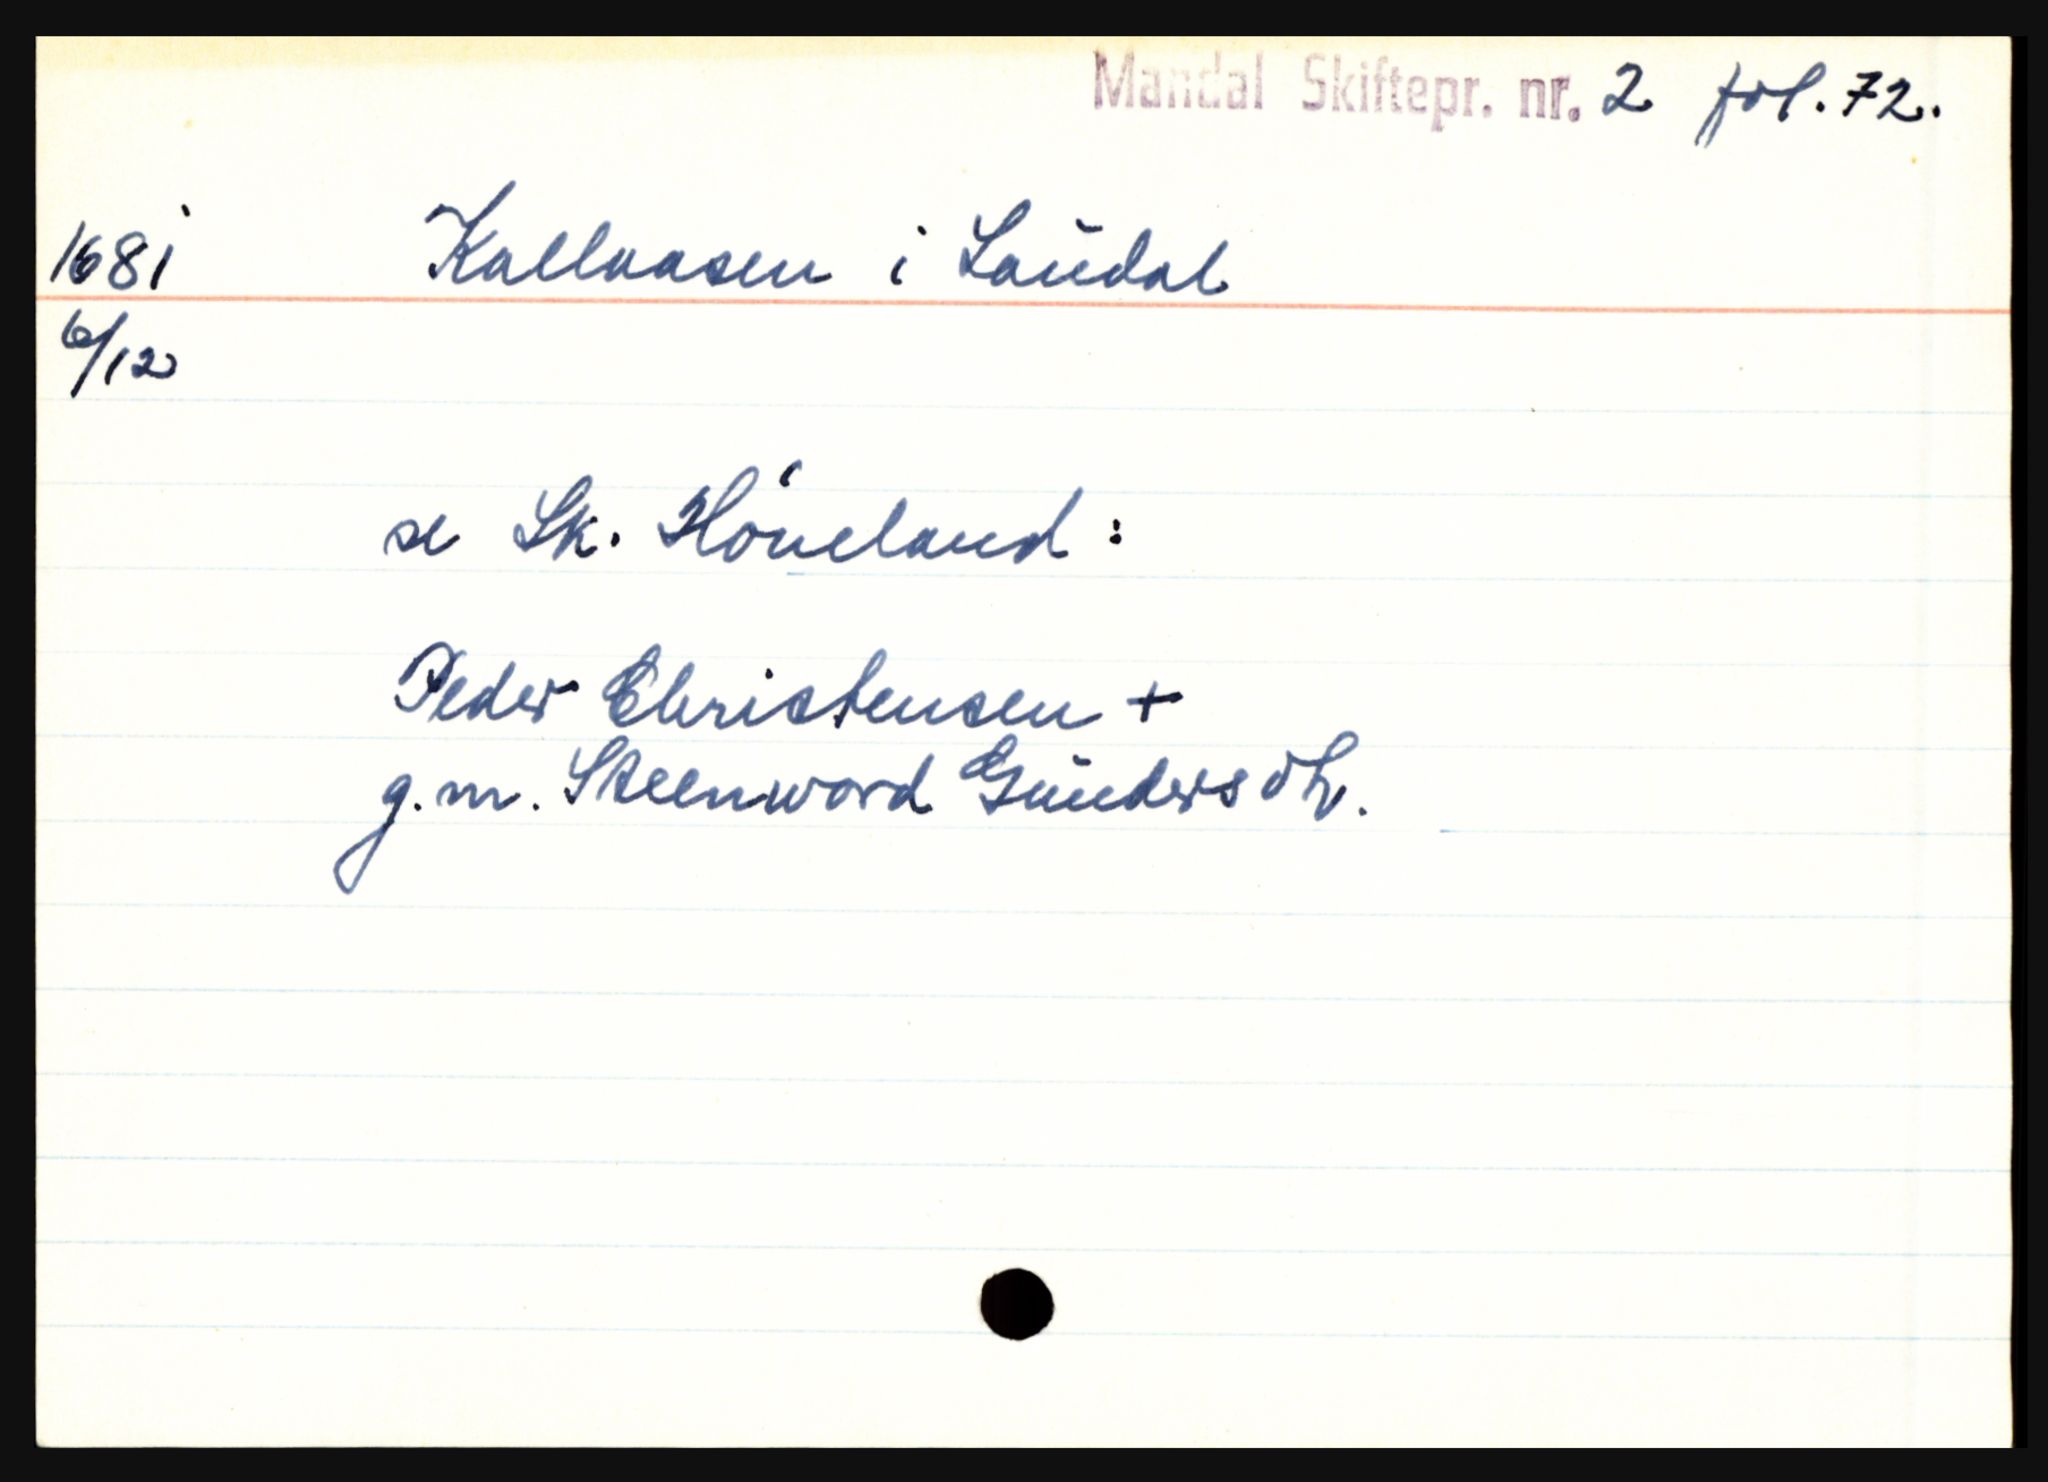 Mandal Skiftepr. nr. 2 fol. 72.
1681 Kallaasen i Laudal
6/12
se Sk. Höneland:
Peder Christensen +
g.m. Steenword Gundersdtr.